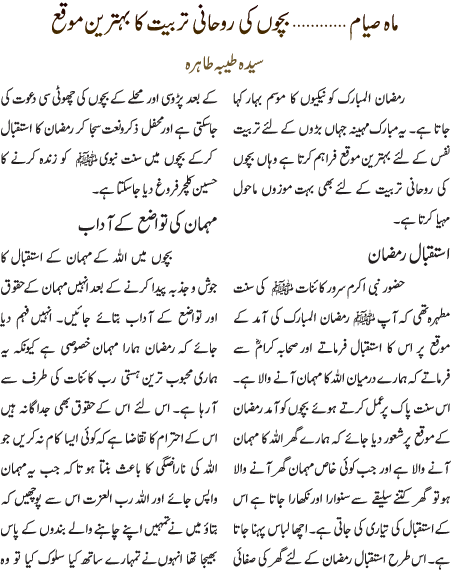 ماہ صیام ............ بچوں کی روحانی تربیت کا بہترین موقع
سیدہ طیبہ طاہرہ
رمضان المبارک کو نیکیوں کا موسم بہار کہا
جاتا ہے۔ یہ مبارک مہینہ جہاں بڑوں کے لئے تربیت
نفس کے لئے بہترین موقع فراہم کرتا ہے وہاں بچوں
کی روحانی تربیت کے لئے بھی بہت موزوں ماحول
مہیا کرتا ہے۔
استقبال رمضان
حضور نبی اکرم سرور کائنات ﷺ کی سنت
مطہرہ تھی کہ آپ ﷺ رمضان المبارک کی آمد کے
موقع پر اس کا استقبال فرماتے اور صحابہ کرامؓ سے
فرماتے کہ ہمارے درمیان اللہ کا مہمان آنے والا ہے۔
اس سنت پاک پر عمل کرتے ہوئے بچوں کو آمد رمضان
کے موقع پر شعور دیا جائے کہ ہمارے گھر اللہ کا مہمان
آنے والا ہے اور جب کوئی خاص مہمان گھر آنے والا
ہو تو گھر کتنے سلیقے سے سنوارا اور نکھارا جاتا ہے اس
کے استقبال کی تیاری کی جاتی ہے۔ اچھا لباس پہنا جاتا
ہے۔ اس طرح استقبال رمضان کے لئے گھر کی صفائی
کے بعد پڑوسی اور محلے کے بچوں کی چھوٹی سی دعوت کی
جاسکتی ہے اور محفل ذکر و نعت سجا کر رمضان کا استقبال
کرکے بچوں میں سنت نبوی ﷺ کو زندہ کرنے کا
حسین کلچر فروغ دیا جاسکتا ہے۔
مہمان کی تواضع کے آداب
بچوں میں اللہ کے مہمان کے استقبال کا
جوش و جذبہ پیدا کرنے کے بعد انہیں مہمان کے حقوق
اور تواضع کے آداب بتائے جائیں۔ انہیں فہم دیا
جائے کہ رمضان ہمارا مہمان خصوصی ہے کیونکہ یہ
ہماری محبوب ترین ہستی رب کائنات کی طرف سے
آرہا ہے۔ اس لئے اس کے حقوق بھی جداگانہ ہیں
اس کے احترام کا تقاضا ہے کہ کوئی ایسا کام نہ کریں جو
اللہ کی ناراضگی کا باعث بنتا ہو تا کہ جب یہ مہمان
واپس جائے اور اللہ رب العزت اس سے پوچھیں کہ
بتاؤ میں نے تمہیں اپنے چاہنے والے بندوں کے پاس
بھیجا تھا انہوں نے تمہارے ساتھ کیا سلوک کیا تو وہ